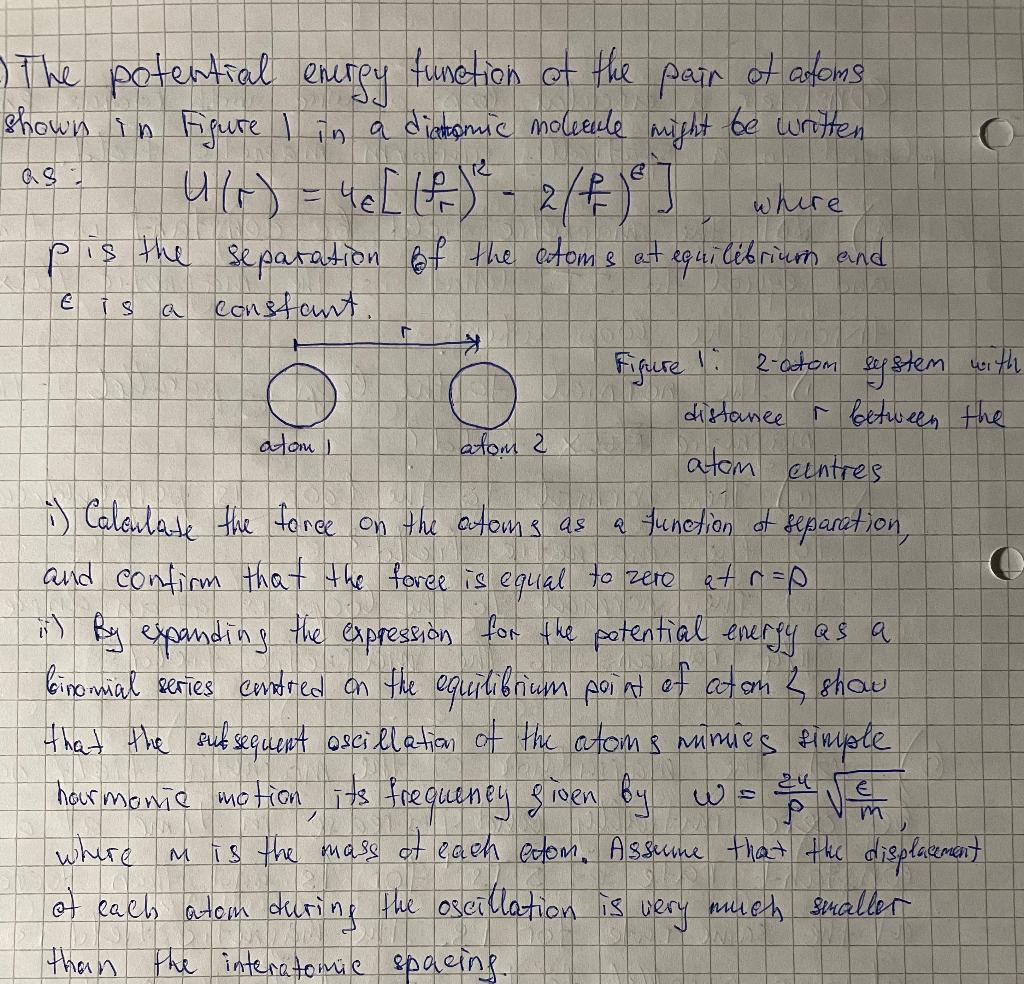 ) The potential energy function of the pair of atoms
shown in Figure 1 in a diatomic molecule might be written
as: U(r) = 4ϵ[(ρ/r)^12 - 2(ρ/r)^6], where
ρ is the separation of the atoms at equilibrium and
ϵ is a constant.
r
atom 1 atom 2
Figure 1: 2-atom system with
distance r between the
atom centres
i) Calculate the force on the atoms as a function of separation,
and confirm that the force is equal to zero at r=ρ
ii) By expanding the expression for the potential energy as a
binomial series centred on the equilibrium point of atom 2, show
that the subsequent oscillation of the atoms mimics simple
harmonic motion, its frequency given by ω = 24/ρ √(ϵ/m),
where m is the mass of each atom. Assume that the displacement
of each atom during the oscillation is very much smaller
than the interatomic spacing.